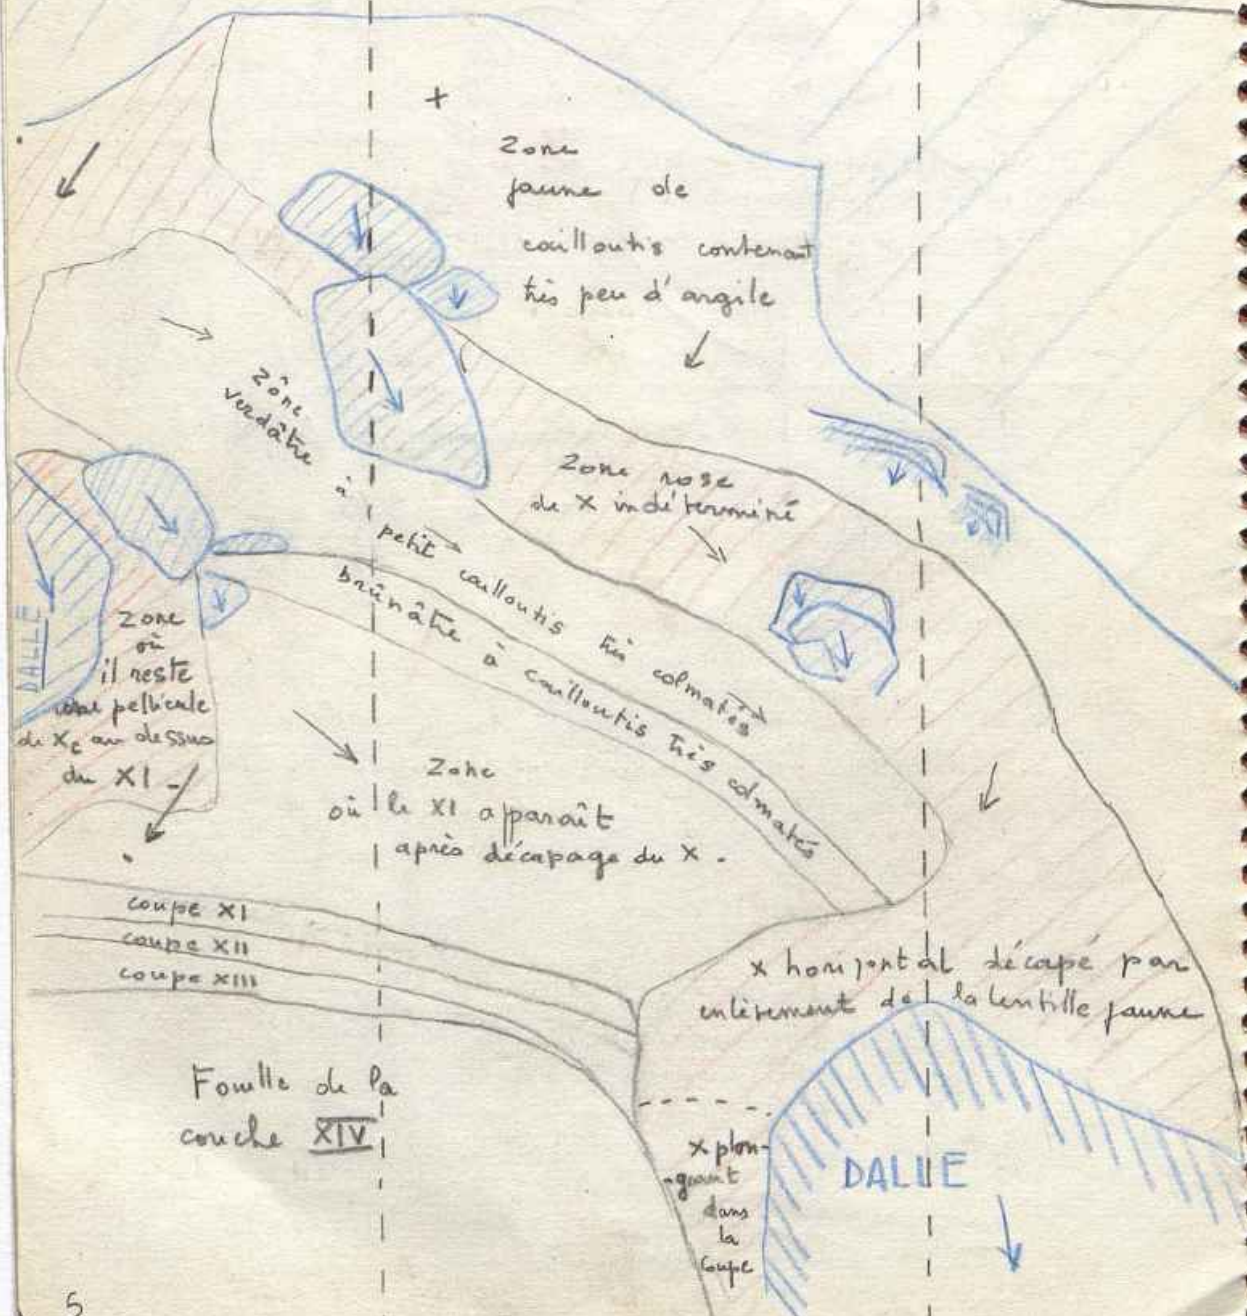 +
Zone
jaune de
cailloutis contenant
très peu d'argile
Zône
verdâtre
à
petit cailloutis très colmatés
brûnâtre à cailloutis très colmatés
Zone rose
de X indéterminé
DALLE
Zone
où
il reste
une pellicule
de Xc au dessus
du XI -
Zone
où le XI apparaît
après décapage du X .
coupe XI
coupe XII
coupe XIII
X horizontal décapé par
enlèvement de la lentille jaune
Fouille de la
couche XIV
X plon-
-geant
dans
la
coupe
DALLE
5